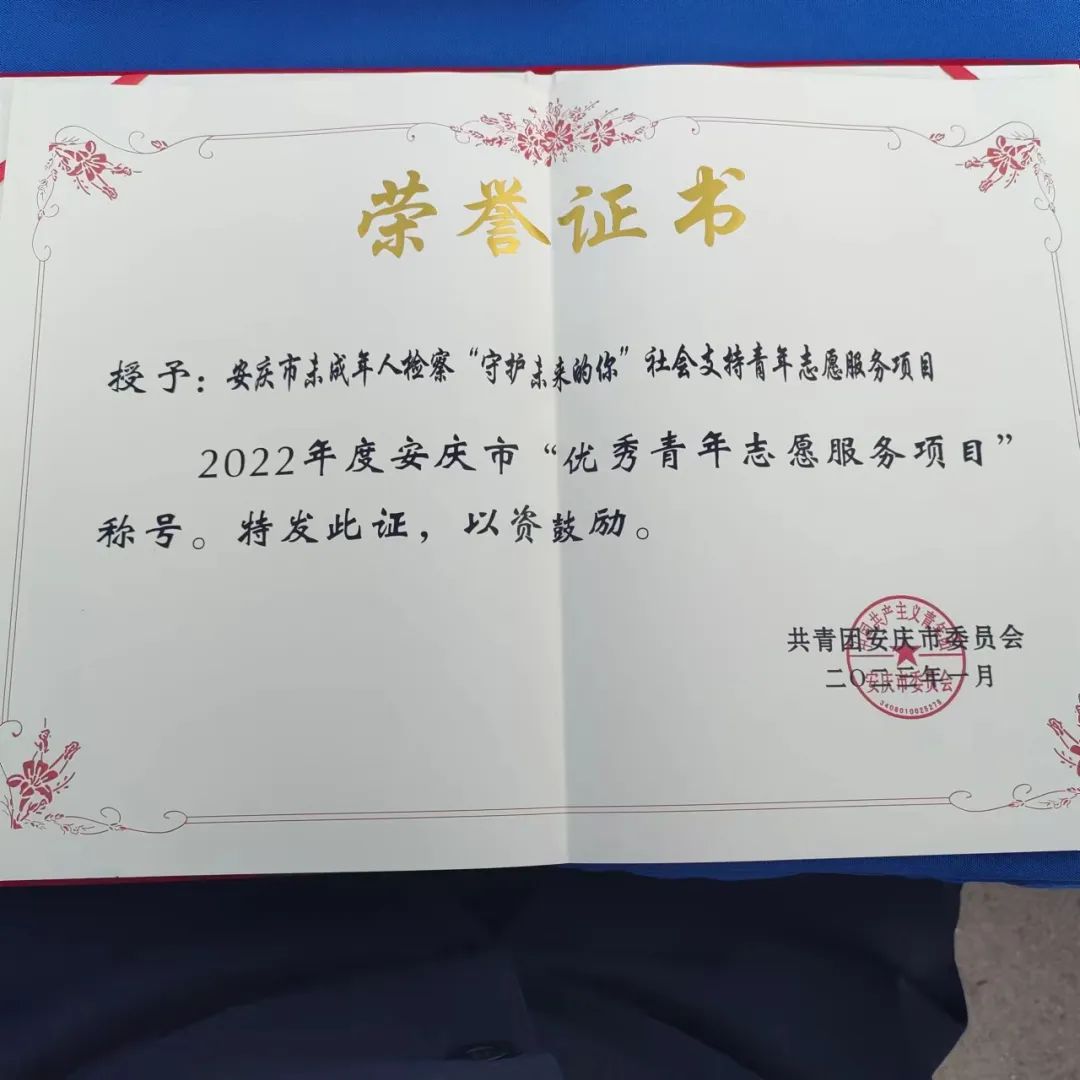 荣誉证书
授予：安庆市未成年人检察“守护未来的你”社会支持青年志愿服务项目
2022年度安庆市“优秀青年志愿服务项目”
称号。特发此证，以资鼓励。
共青团安庆市委员会
二〇二三年一月
安庆市委员会